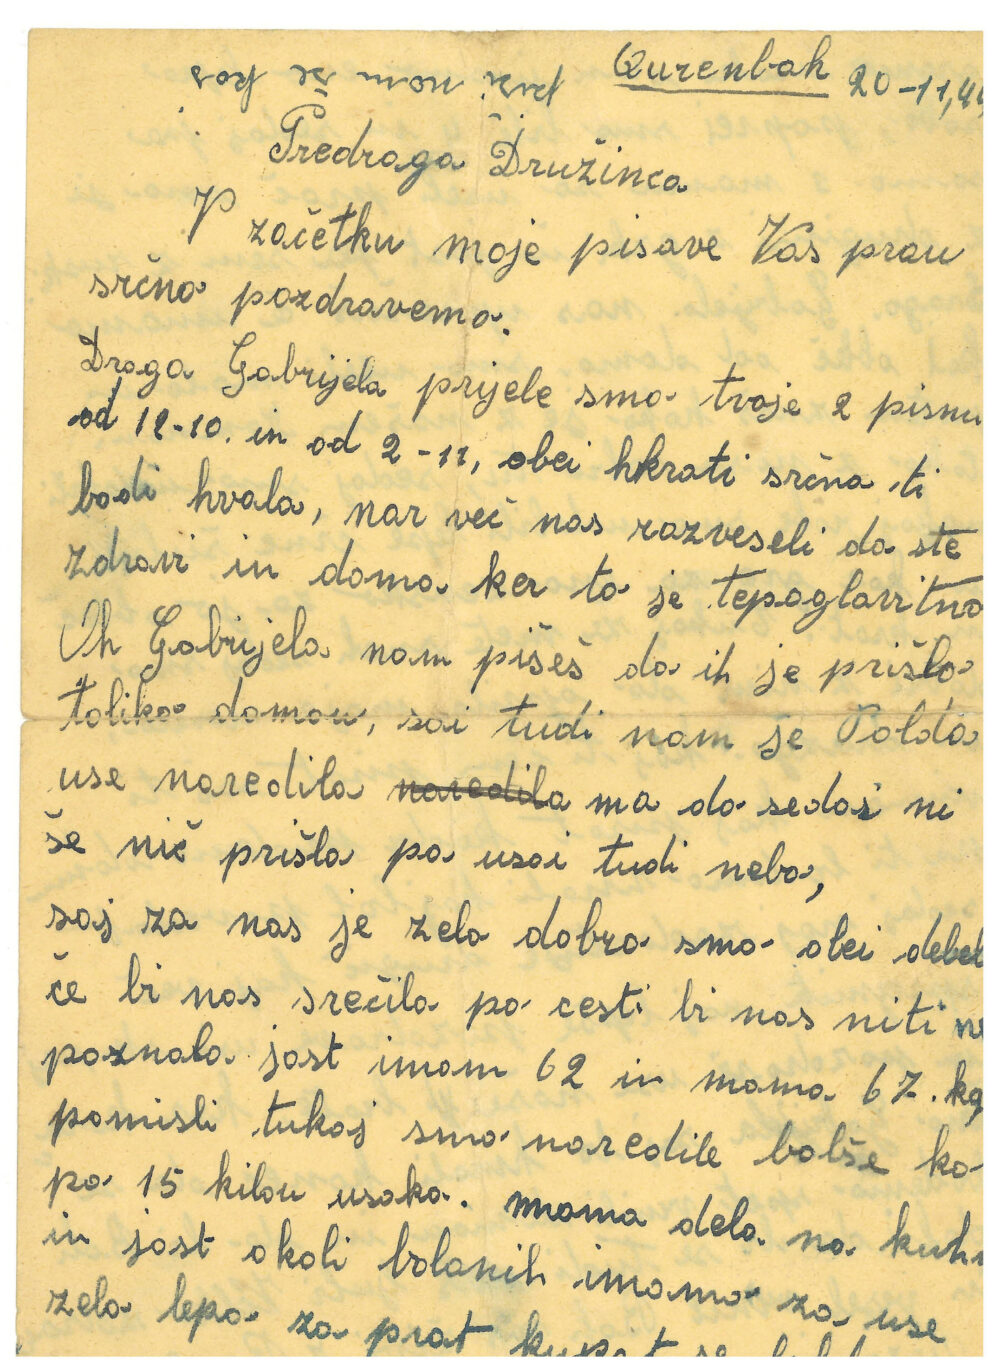 Qurenbah 20-11,44
piši nam še kos
Predraga Družinca
V začetku moje pisave Vas prau
srčno pozdravemo.
Draga Gabrijela prijele smo tvoje 2 pismu
od 12-10. in od 2-11, obei hkrati srčna ti
bodi hvala, nar več nas razveseli da ste
zdravi in doma ker to je tepoglavitno
Oh Gabrijela nam pišeš da ih je prišlo
toliko domou, sai tudi nam je Polda
use naredila naredila ma do sedai ni
še nič prišlo pa usai tudi nebo,
saj za nas je zelo dobro smo obei debel
če bi nas srečila po cesti bi nas niti ne
poznala jast imam 62 in mama 67. kg
pomisli tukaj smo naredile bolše ko
po 15 kilou usaka. mama dela na kuhn
in jast okoli bolanih imamo za use
zelo lepo za prat kupat se